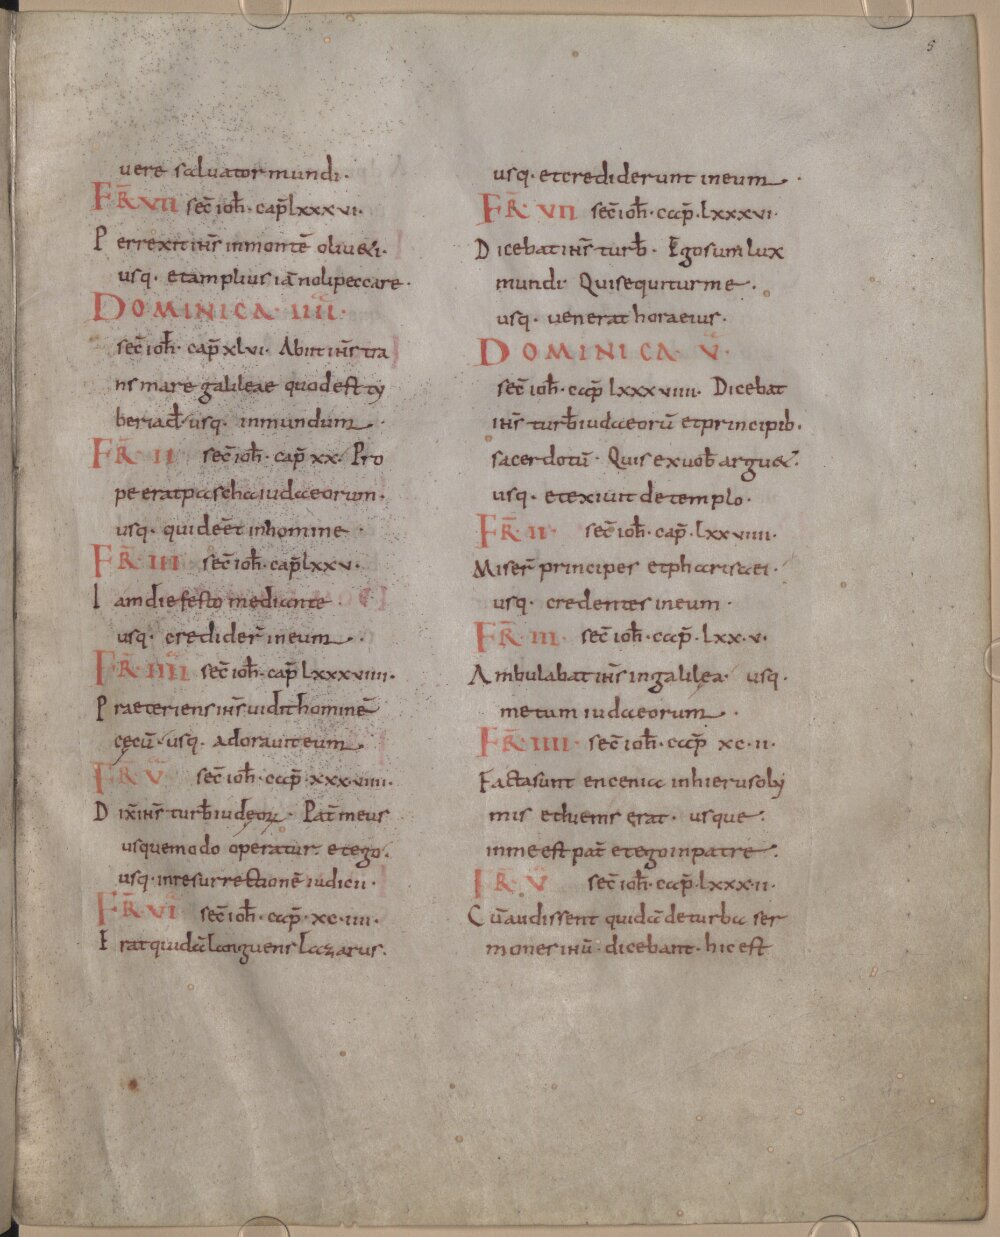 5
uere saluator mundi·
FR̄ VII sec̄ ioh̄· cap̄ lxxxvi·
Perrexit ih̄s in montē oliueti·
usq· et amplius iā noli peccare·
DOMINICA· IIII·
sec̄ ioh̄· cap̄ xlvi· Abiit ih̄s tra
ns mare galileae quod est ty
beriad̄· usq· in mundum·
FR̄· II sec̄ ioh̄· cap̄ xx· Pro
pe erat pascha iudaeorum·
usq· quid eēt in homine·
FR̄· III sec̄ ioh̄· cap̄ lxxv·
Iam die festo mediante·
usq· credider̄ in eum·
FR̄· IIII sec̄ ioh̄· cap̄ lxxxviiii·
Praeteriens ih̄s uidit hominē
cęcū· usq· adorauit eum·
FR̄ V sec̄ ioh̄· cap̄· xxxviiii·
Dix̄ ih̄s turb̄ iudęoꝝ· Pat̄ meus
usque modo operatur· et ego·
usq· in resurrectionē iudicii·
FR̄· VI sec̄ ioh̄· cap̄· xc·iiii·
Erat quidā languens lazarus·
usq· et crediderunt in eum·
FR̄· VII sec̄ ioh̄· cap̄· lxxxvi·
Dicebat ih̄s turb̄· Ego sum lux
mundi· Qui sequitur me·
usq· uenerat hora eius·
DOMINICA· V·
sec̄ ioh̄· cap̄ lxxxviiii· Dicebat
ih̄s turb̄ iudaeorū et principib·
sacerdotū· Quis ex uob̄ arguet·
usq· et exiuit de templo·
FR̄· II· sec̄ ioh̄· cap̄· lxxviiii·
Miser̄ principes et pharisaei·
usq· credentes in eum·
FR̄· III· sec̄ ioh̄· cap̄· lxx·v·
Ambulabat ih̄s in galilea· usq·
metum iudaeorum·
FR̄· IIII· sec̄ ioh̄· cap̄ xc·ii·
Facta sunt encenia in hierusoly
mis et hiems erat· usque·
in me est pat̄ et ego in patre·
FR̄· V sec̄ ioh̄· cap̄· lxxx·ii·
Cū audissent quidā de turba ser
mones ih̄u· dicebant· hic est